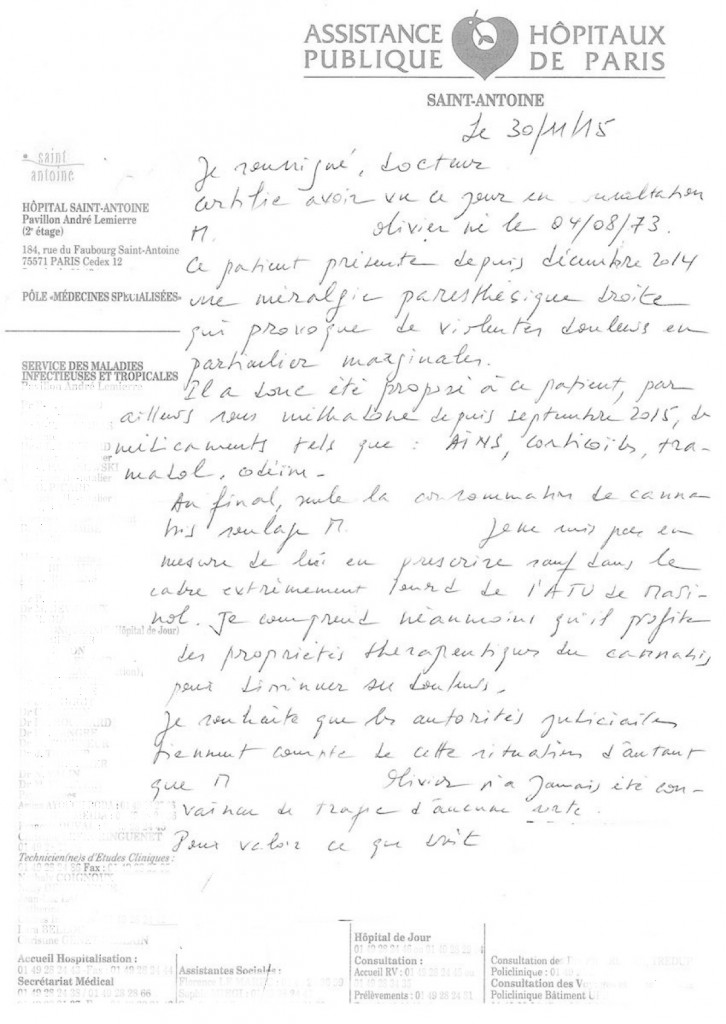 ASSISTANCE HÔPITAUX
PUBLIQUE DE PARIS
SAINT-ANTOINE
Le 30/11/15
saint
antoine
HÔPITAL SAINT-ANTOINE
Pavillon André Lemierre
(2e étage)
184, rue du Faubourg Saint-Antoine
75571 PARIS Cedex 12
PÔLE «MÉDECINES SPECIALISÉES»
SERVICE DES MALADIES
INFECTIEUSES ET TROPICALES
Pavillon André Lemierre
Je soussigné, Docteur
certifie avoir vu ce jour en consultation
M. Olivier né le 04/08/73.
Ce patient présente depuis décembre 2014
une méralgie paresthésique droite
qui provoque de violentes douleurs en
particulier marginales.
Il a donc été proposé à ce patient, par
ailleurs sous méthadone depuis septembre 2015, de
médicaments tels que : AINS, corticoïdes, tra-
madol, codéine.
Au final, seule la consommation de canna-
bis soulage M. Je ne suis pas en
mesure de lui en prescrire sauf dans le
cadre extrêmement lourd de l'ATU de Mari-
nol. Je comprend néanmoins qu'il profite
des propriétés thérapeutiques du cannabis
pour diminuer ses douleurs.
Je souhaite que les autorités judiciaires
tiennent compte de cette situation d'autant
que M Olivier n'a jamais été con-
vaincu de trafic d'aucune sorte.
Pour valoir ce que droit
Hôpital de Jour)
Technicien(ne)s d'Etudes Cliniques :
Fax :
Accueil Hospitalisation :
01 49 28 24 42 Fax : 01 49 28 24
Secrétariat Médical
01 49 28 28 66
Assistantes Sociales :
Hôpital de Jour
Consultation :
Accueil RV : 01 49 28 24
Prélèvements : 01 49 28 24
Consultation de
Policlinique : 01
Consultation des V
Policlinique Bâtiment